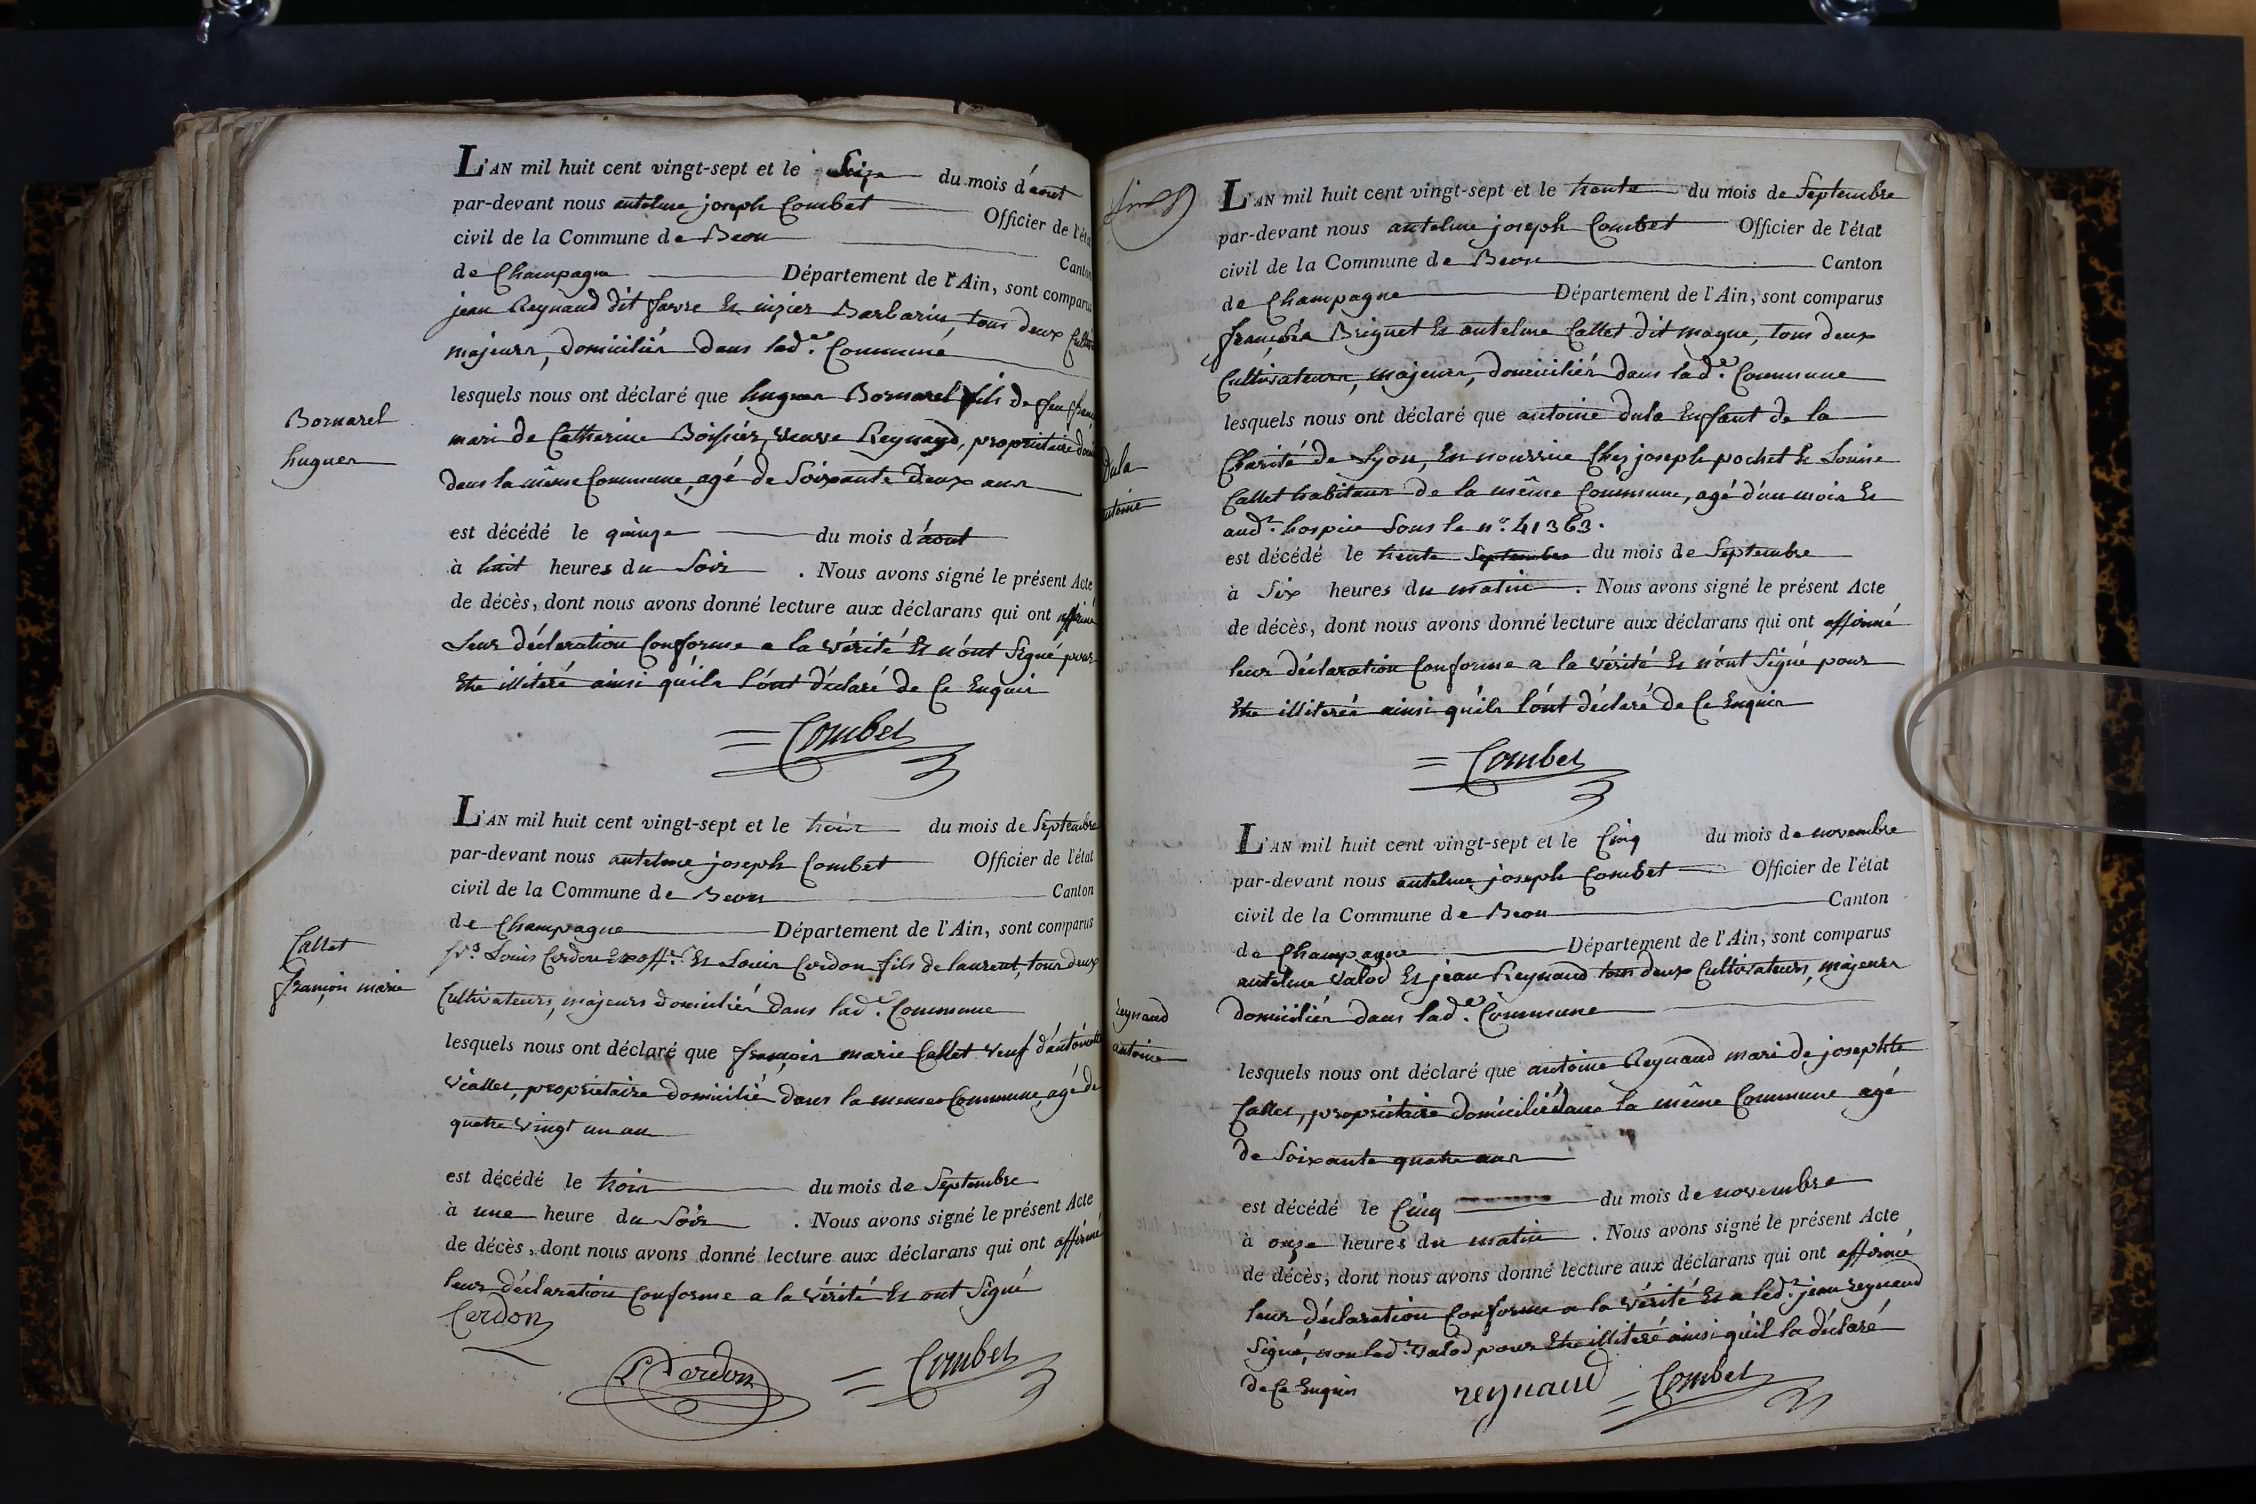 L'AN mil huit cent vingt-sept et le Seize du mois d'aout
par-devant nous antelme joseph Combet Officier de l'état
civil de la Commune de Beon Canton
de Champagne Département de l'Ain, sont comparus
jean Reynaud dit favre Et nizier Barbarin, tous deux
majeurs, domiciliés dans lad.e Commune
lesquels nous ont déclaré que hugues Bornarel fils de feu
Bornarel
mari de Catherine Boissier, veuve Reynaud, propriétaire
hugues
dans la même Commune, agé de Soixante Deux ans
est décédé le quinze du mois d'aout
à huit heures du Soir . Nous avons signé le présent Acte
de décès, dont nous avons donné lecture aux déclarans qui ont affirmé
Leur déclaration Conforme a la vérité Et n'ont Signé pour
Etre illiteré ainsi qu'ils l'ont déclaré de Ce Enquis
= Combet
L'AN mil huit cent vingt-sept et le trois du mois de Septembre
par-devant nous antelme joseph Combet Officier de l'état
civil de la Commune de Beon Canton
de Champagne Département de l'Ain, sont comparus
Callet
Louis Cerdon Exoff.r Et Louis Cerdon fils de laurent, tous deux
françois marie
Cultivateurs, majeurs domiciliés dans lad.e Commune
lesquels nous ont déclaré que françois marie Callet veuf d'antoinette
viallet, propriétaire domicilié dans la meme Commune, agé de
quatre vingt un an
est décédé le trois du mois de Septembre
à une heure du Soir . Nous avons signé le présent Acte
de décès, dont nous avons donné lecture aux déclarans qui ont affirmé
leur déclaration Conforme a la vérité Et ont Signé
Cerdon
L Cerdon = Combet
L'AN mil huit cent vingt-sept et le trente du mois de Septembre
par-devant nous antelme joseph Combet Officier de l'état
civil de la Commune de Beon Canton
de Champagne Département de l'Ain, sont comparus
françois Briguet Et antelme Callet dit magne, tous deux
Cultivateurs, majeurs, domiciliés dans lad.e Commune
lesquels nous ont déclaré que antoine dula Enfant de la
dula
Charité de Lyon, En nourrice Chez joseph pochet Et Louise
antoine
Callet habitans de la même Commune, agé d'un mois Et
aud.t hospice Sous le n.o 41363.
est décédé le trente Septembre du mois de Septembre
à Six heures du matin . Nous avons signé le présent Acte
de décès, dont nous avons donné lecture aux déclarans qui ont affirmé
leur déclaration Conforme a la vérité Et n'ont Signé pour
Etre illiterés ainsi qu'ils l'ont déclaré de Ce Enquis
= Combet
L'AN mil huit cent vingt-sept et le Cinq du mois de novembre
par-devant nous antelme joseph Combet Officier de l'état
civil de la Commune de Beon Canton
de Champagne Département de l'Ain, sont comparus
antelme valod Et jean Reynaud tous deux Cultivateurs, majeurs
reynaud
domiciliés dans lad.e Commune
antoine
lesquels nous ont déclaré que antoine Reynaud mari de josephte
Callet, propriétaire domicilié dans la même Commune agé
de Soixante quatre ans
est décédé le Cinq du mois de novembre
à onze heures du matin . Nous avons signé le présent Acte
de décès, dont nous avons donné lecture aux déclarans qui ont affirmé
leur déclaration Conforme a la vérité Et a led.t jean reynaud
Signé, non led.t valod pour Etre illiteré ainsi qu'il la déclaré
de Ce Enquis reynaud = Combet